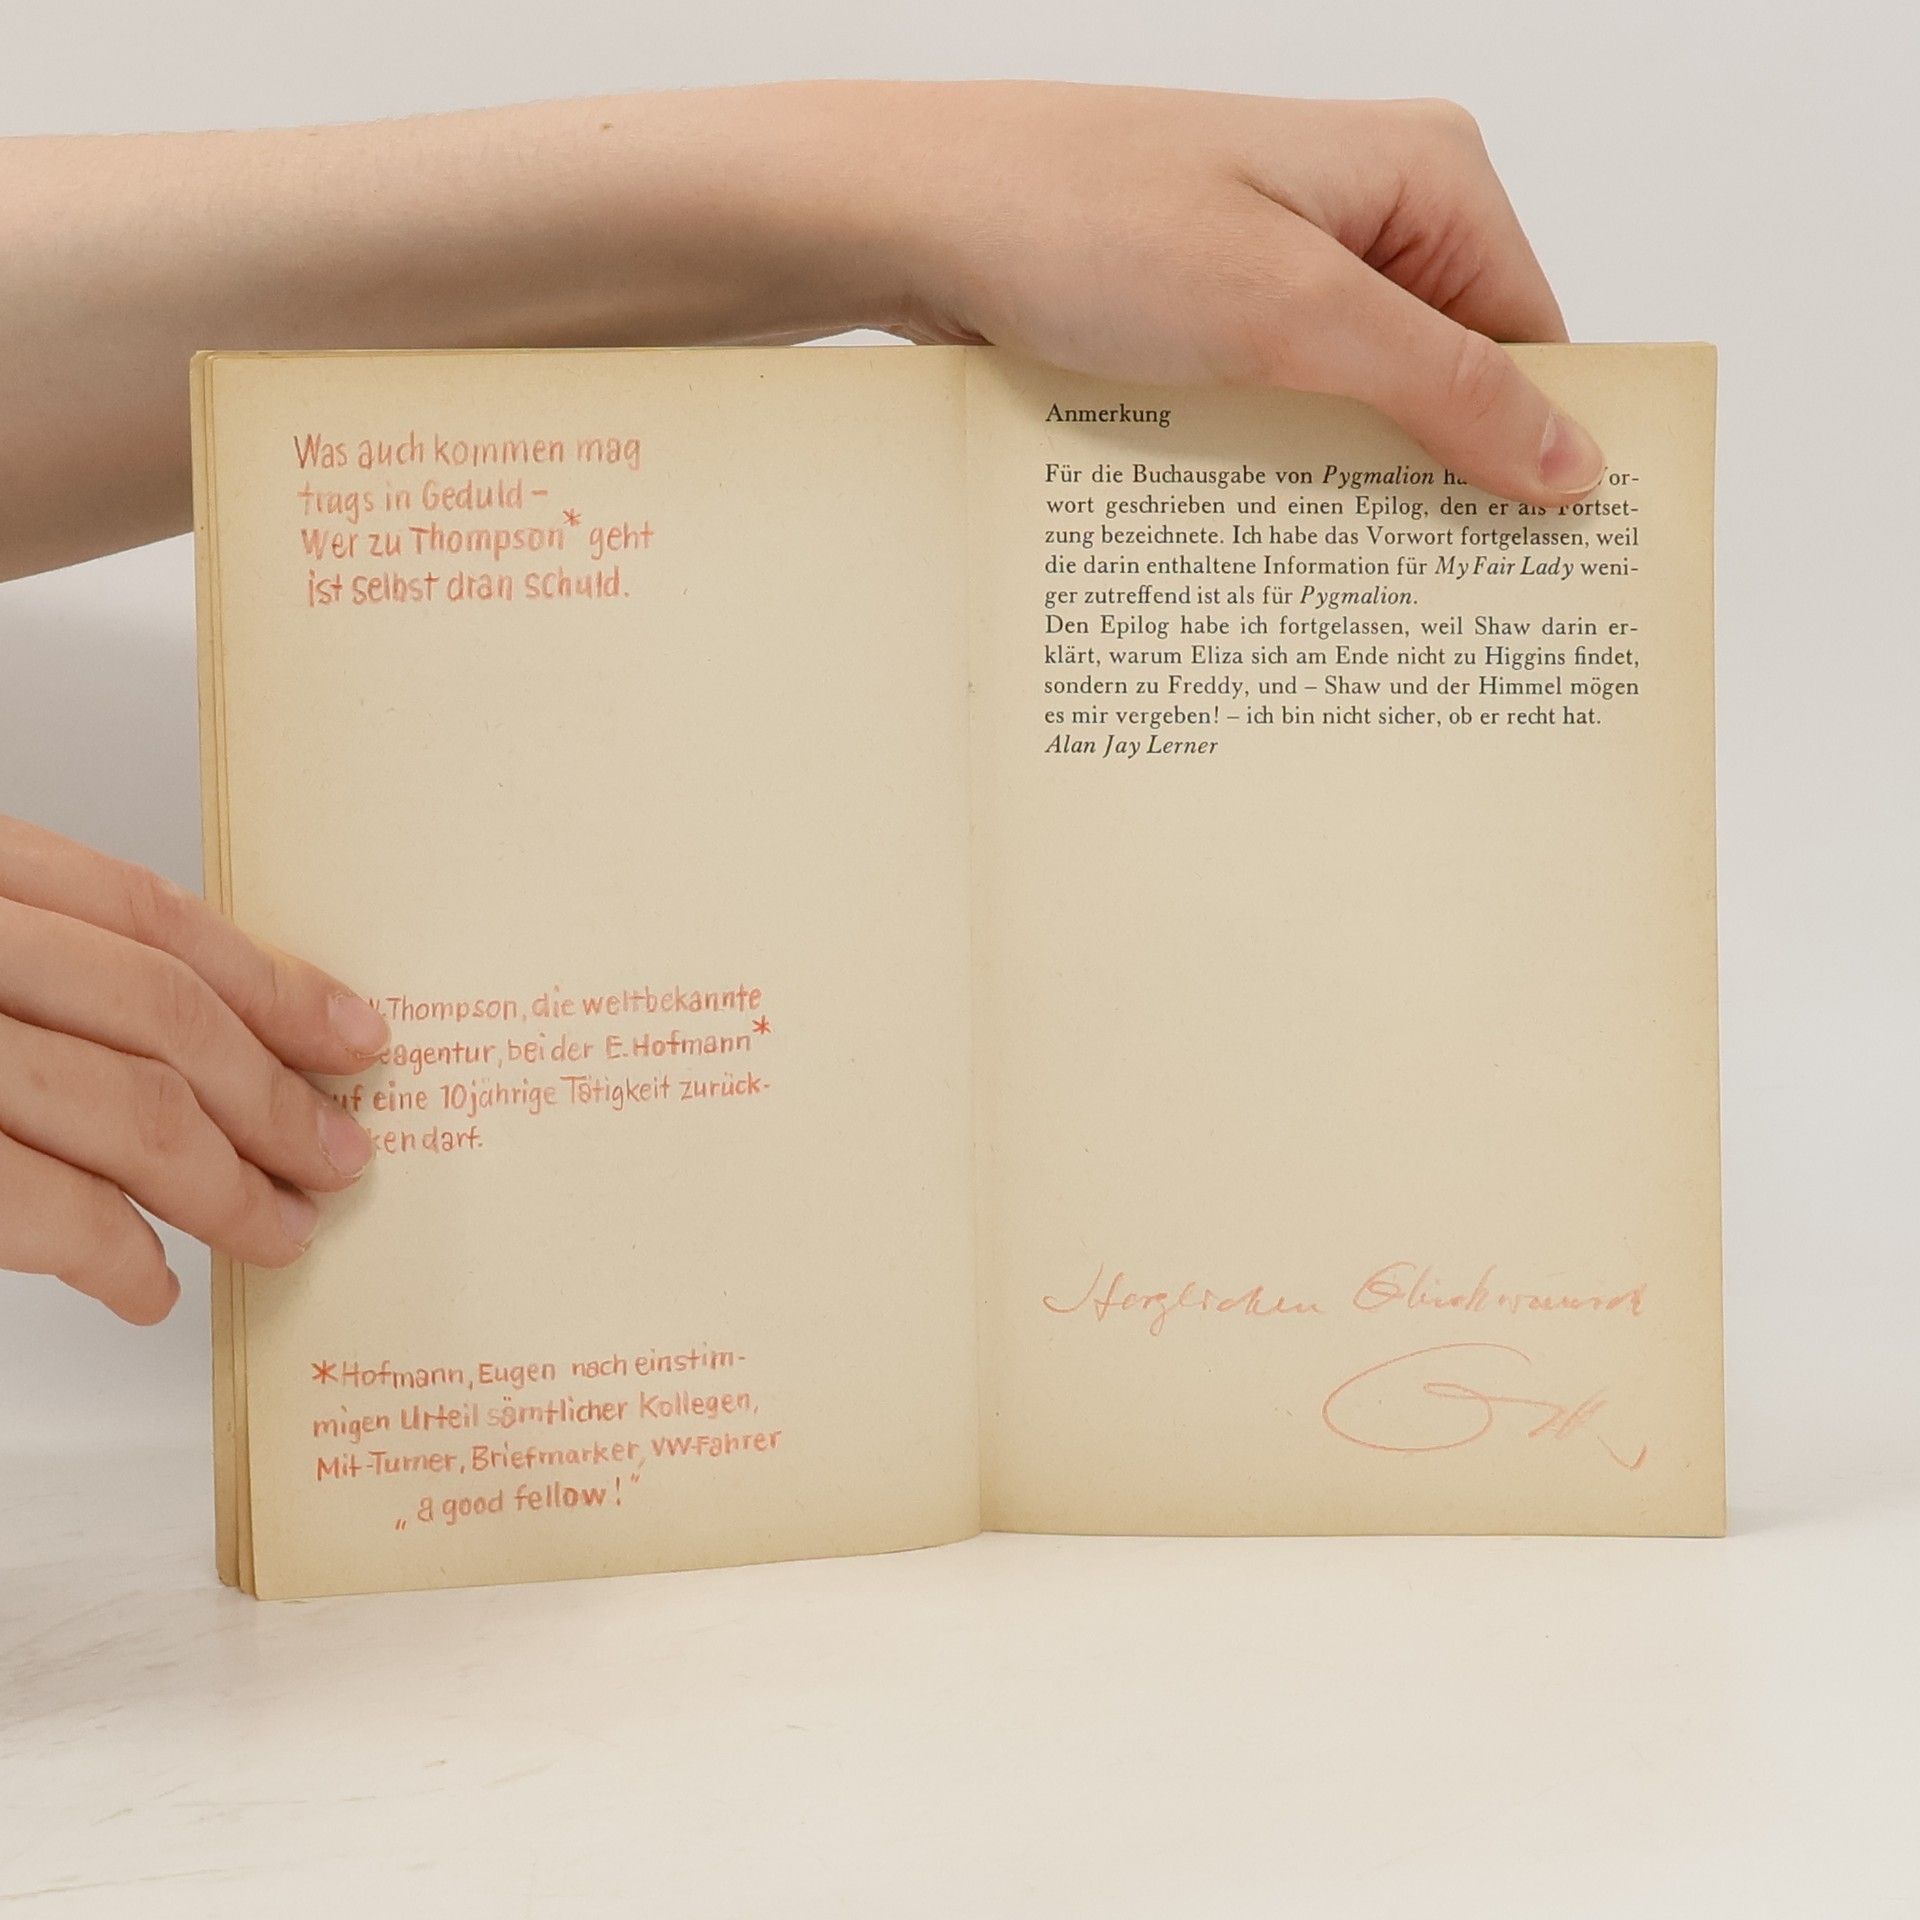 Was auch kommen mag
trags in Geduld –
Wer zu Thompson* geht
ist selbst dran schuld.
Thompson, die weltbekannte
agentur, bei der E. Hofmann*
eine 10jährige Tätigkeit zurück-
darf.
*Hofmann, Eugen nach einstim-
migen Urteil sämtlicher Kollegen,
Mit-Turner, Briefmarker, VW-Fahrer
„a good fellow!"
Anmerkung
Für die Buchausgabe von Pygmalion
wort geschrieben und einen Epilog, den er als Fortset-
zung bezeichnete. Ich habe das Vorwort fortgelassen, weil
die darin enthaltene Information für My Fair Lady weni-
ger zutreffend ist als für Pygmalion.
Den Epilog habe ich fortgelassen, weil Shaw darin er-
klärt, warum Eliza sich am Ende nicht zu Higgins findet,
sondern zu Freddy, und – Shaw und der Himmel mögen
es mir vergeben! – ich bin nicht sicher, ob er recht hat.
Alan Jay Lerner
Herzlichen Glückwunsch